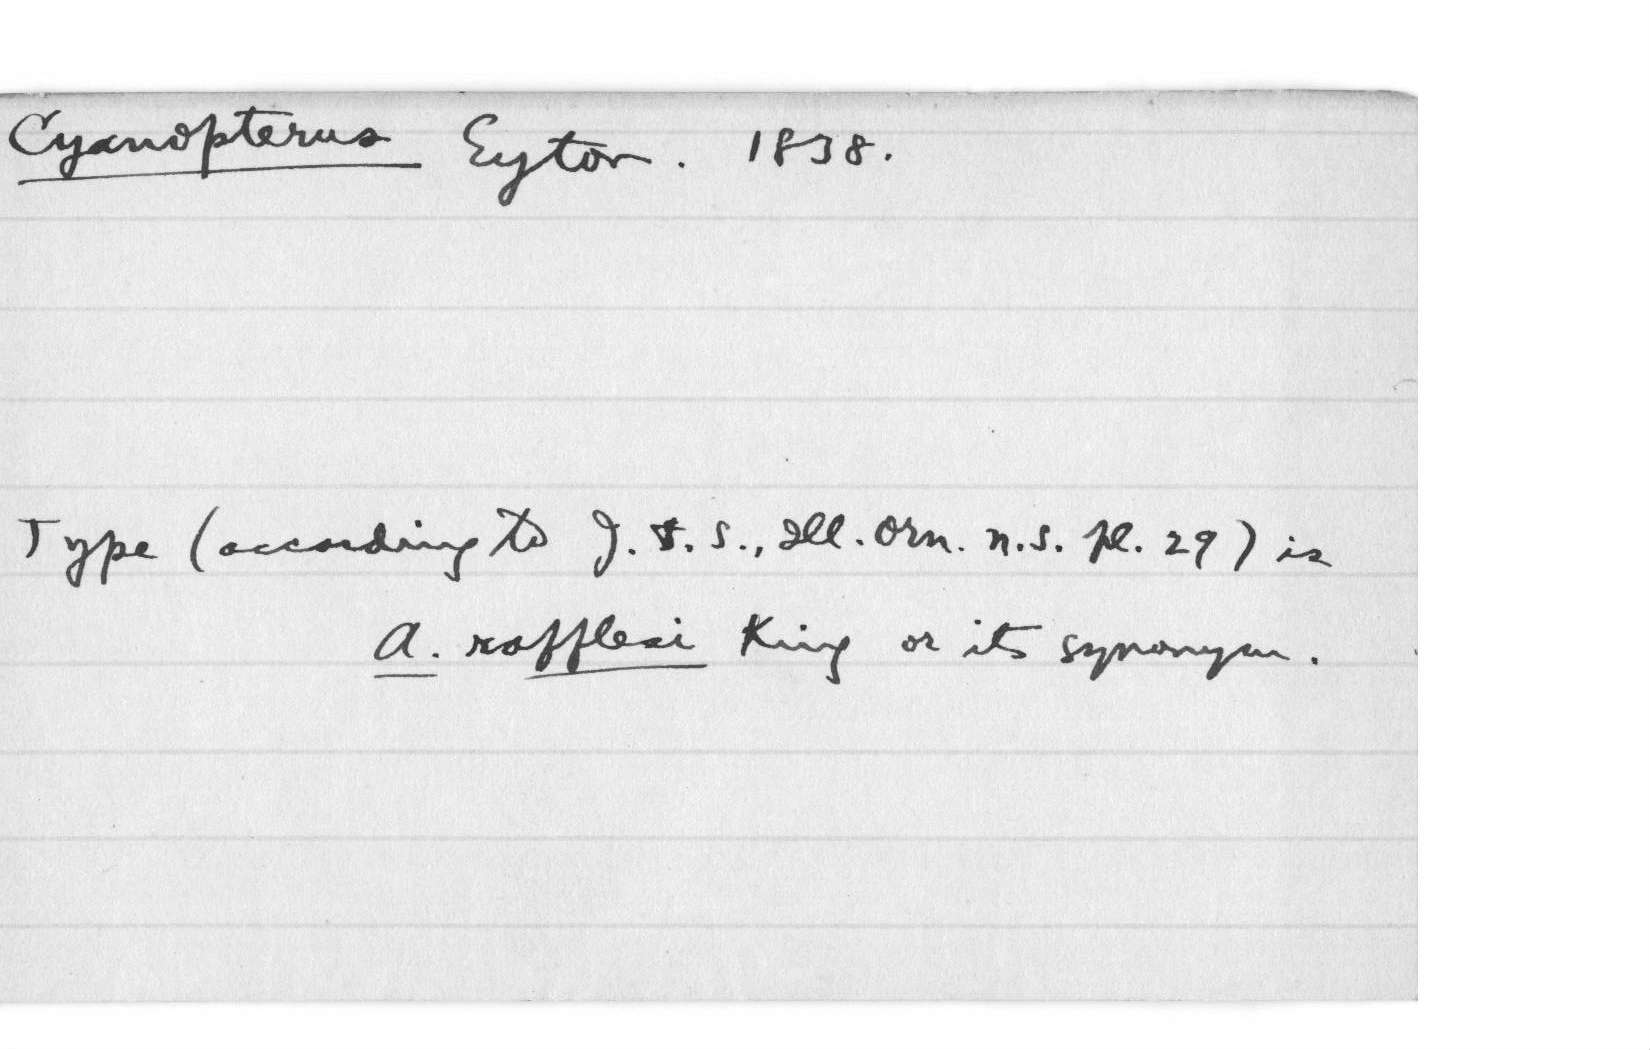 Cyanopterus Eyton. 1838.
Type (according to J. & S., Ill. Orn. n.s. pl. 29) is
A. rafflesi King or its synonym.